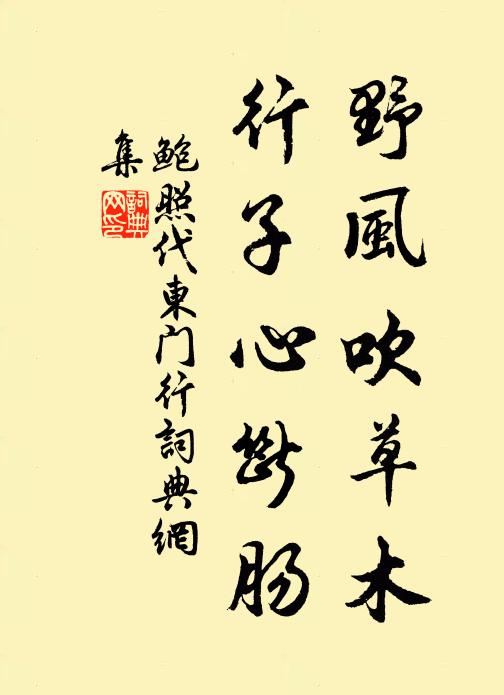 野風吹草木
行子心斷腸
鮑照代東門行詞典網
集
詞典
网印